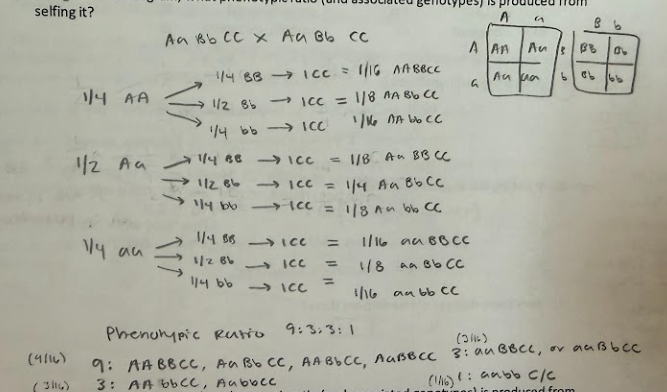 what phenotypic ratio (and associated genotypes) is produced from
selfing it?
A a
B b
Aa Bb CC x Aa Bb CC
A AA Aa
a Aa aa
B BB Bb
b Bb bb
1/4 AA
1/4 BB → 1CC = 1/16 AABBCC
1/2 Bb → 1CC = 1/8 AABbCC
1/4 bb → 1CC 1/16 AAbbCC
1/2 Aa
1/4 BB → 1CC = 1/8 AaBBCC
1/2 Bb → 1CC = 1/4 AaBbCC
1/4 bb → 1CC = 1/8 AabbCC
1/4 aa
1/4 BB → 1CC = 1/16 aaBBCC
1/2 Bb → 1CC = 1/8 aaBbCC
1/4 bb → 1CC = 1/16 aabbCC
Phenotypic Ratio 9:3:3:1
(9/16) 9: AABBCC, AaBbCC, AABbCC, AaBBCC
(3/16) 3: aaBBCC, or aaBbCC
(3/16) 3: AAbbCC, AabbCC
(1/16) 1: aabb C/C